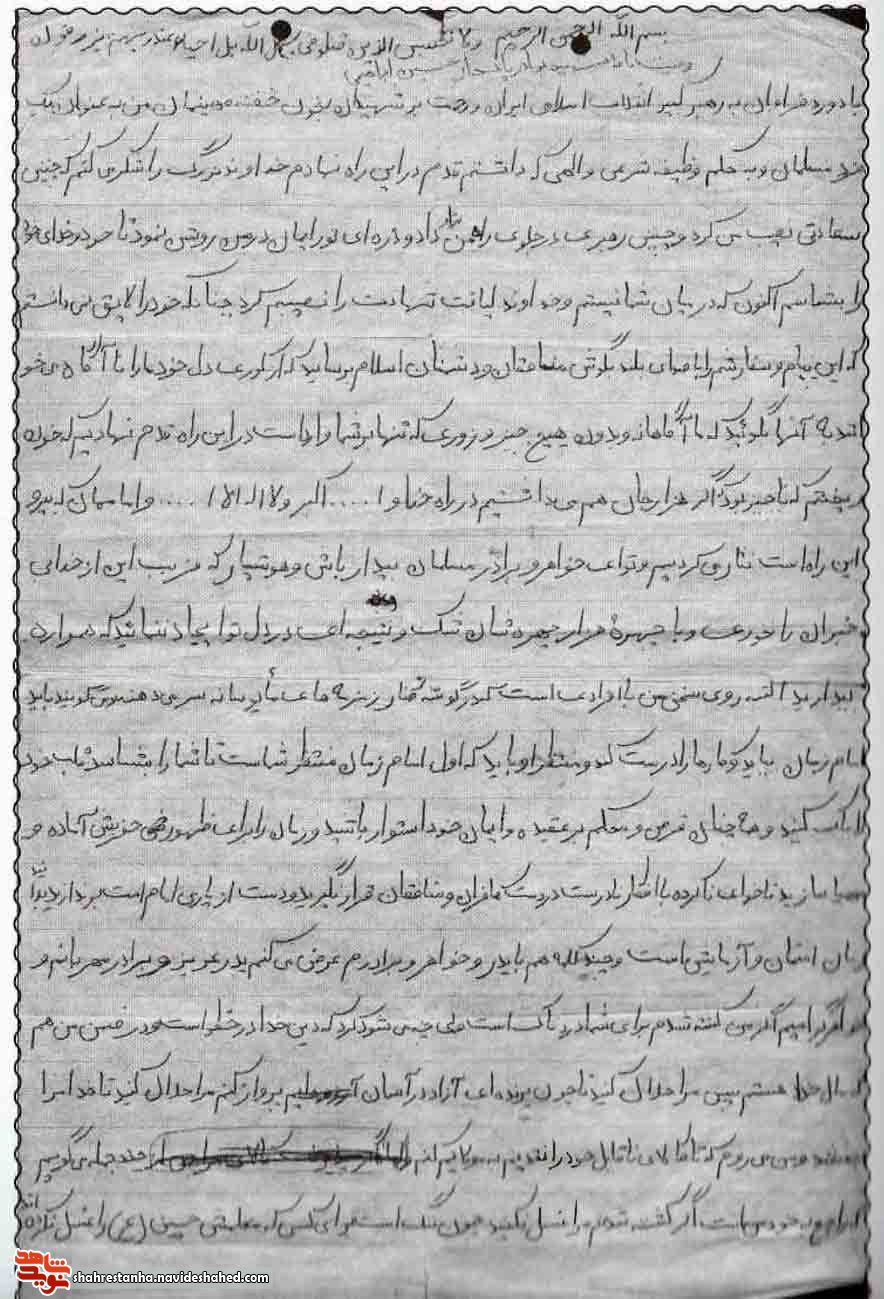 بسم الله الرحمن الرحیم ولا تحسبن الذین قتلوا فی سبیل الله بل احیاء عند ربهم یرزقون
وصیت نامه پاسدار حسین
با درود فراوان به رهبر کبیر انقلاب اسلامی ایران و رحمت بر شهیدان بخون خفته میهنمان من به عنوان یک
فرد مسلمان و به حکم وظیفه شرعی و الهی که داشتم قدم در این راه نهادم خداوند بزرگ را شکر می کنم که چنین
سعادتی نصیب من کرد و چنین رهبری در جلوی راهمن قرار داد و ذره ای نور ایمان در من روشن نمود تا خود و خدای خود
را بشناسم اکنون که در میان شما نیستم و خداوند لیاقت شهادت را نصیبم کرد چنانکه خود را لایق نمی دانستم
که این پیام و سفارشم را با صدای بلند بگوش منافقان و دشمنان اسلام برسانید که از کوری دل خود ما را نا آگاه می خو
انند به آنها بگوئید که ما آگاهانه و بدون هیچ جبر و زوری که تنها بر شما رواست در این راه قدم نهادیم که خون
ریختیم که ناچیز بود اگر هزار جان هم می داشتیم در راه خدا و ا..... اکبر و لا اله الا ا .... و امامان که پیرو
این راه است نثار می کردیم و تو ای خواهر و برادر مسلمان بیدار باش و هوشیار که فریب این از خدایی
خبران را خوری و با چهره هزار چهره شان شک و نتیجه ای در دل تو ایجاد ننمایند که همواره
بیدارید البته روی سخن من با افرادی است که در گوشه کنار زمزمه های مأیوسانه سر می دهند و می گویند باید
امام زمان بیاید و کارها را درست کند و منتظر او باید که اول امام زمان منتظر شماست تا شما را بشناسد قلب خود
را پاک کنید و همچنان قرص و محکم بر عقیده و ایمان خود استوار باشید و زمان را برای ظهور مهدی حقیقی آماده و
مهیا سازید تا خدای ناکرده با افکار نادرست در دست کافران و منافقان قرار نگیرید و دست از یاری امام امت بر ندارید زیرا
زمان امتحان و آزمایش است و چند کلمه هم با پدر و خواهر و برادرم عرض می کنم پدر عزیز و برادر مهربانم و
خواهر گرامیم اگر من کشته شدم برای شما دردناک است ولی چه می شود کرد که دین خدا در خطر است و در ضمن من هم
که مال خدا هستم پس مرا حلال کنید تا چون پرنده ای آزاد در آسان پرواز کنم مرا حلال کنید تا خدا مرا
و من می روم که تا کالای ناقابل خود را تقدیم به مولایم کنم چند جمله می گویم
که راجع به خودم است اگر کشته شدم مرا غسل نکنید چون ننگ است برای کسی که معلمش حسین (ع) را غسل نکرده اند
نوید شاهد
shahrestanha.navideshahed.com